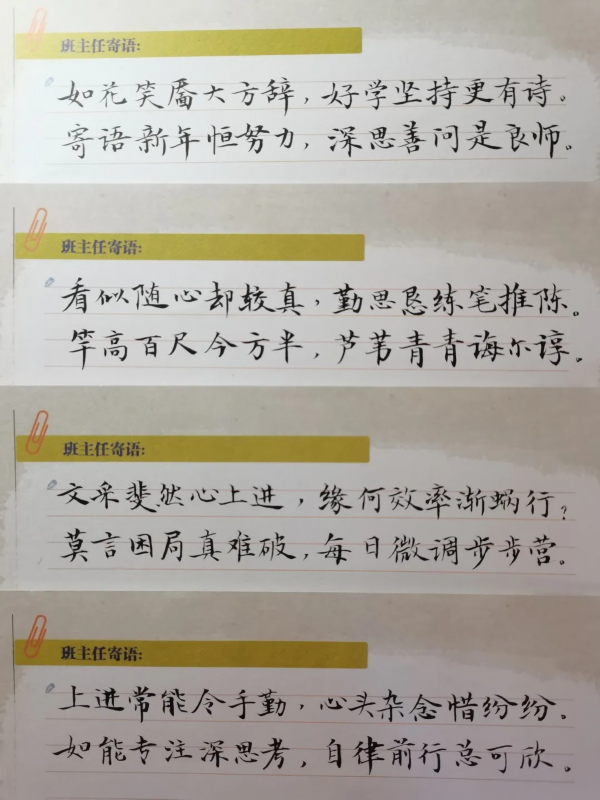 班主任寄语:
如花笑靥大方辞，好学坚持更有诗。
寄语新年恒努力，深思善问是良师。
班主任寄语:
看似随心却较真，勤思恳练笔推陈。
竿高百尺今方半，芦苇青青诲尔谆。
班主任寄语:
文采斐然心上进，缘何效率渐蜗行？
莫言困局真难破，每日微调步步营。
班主任寄语:
上进常能令手勤，心头杂念惜纷纷。
如能专注深思考，自律前行总可欣。